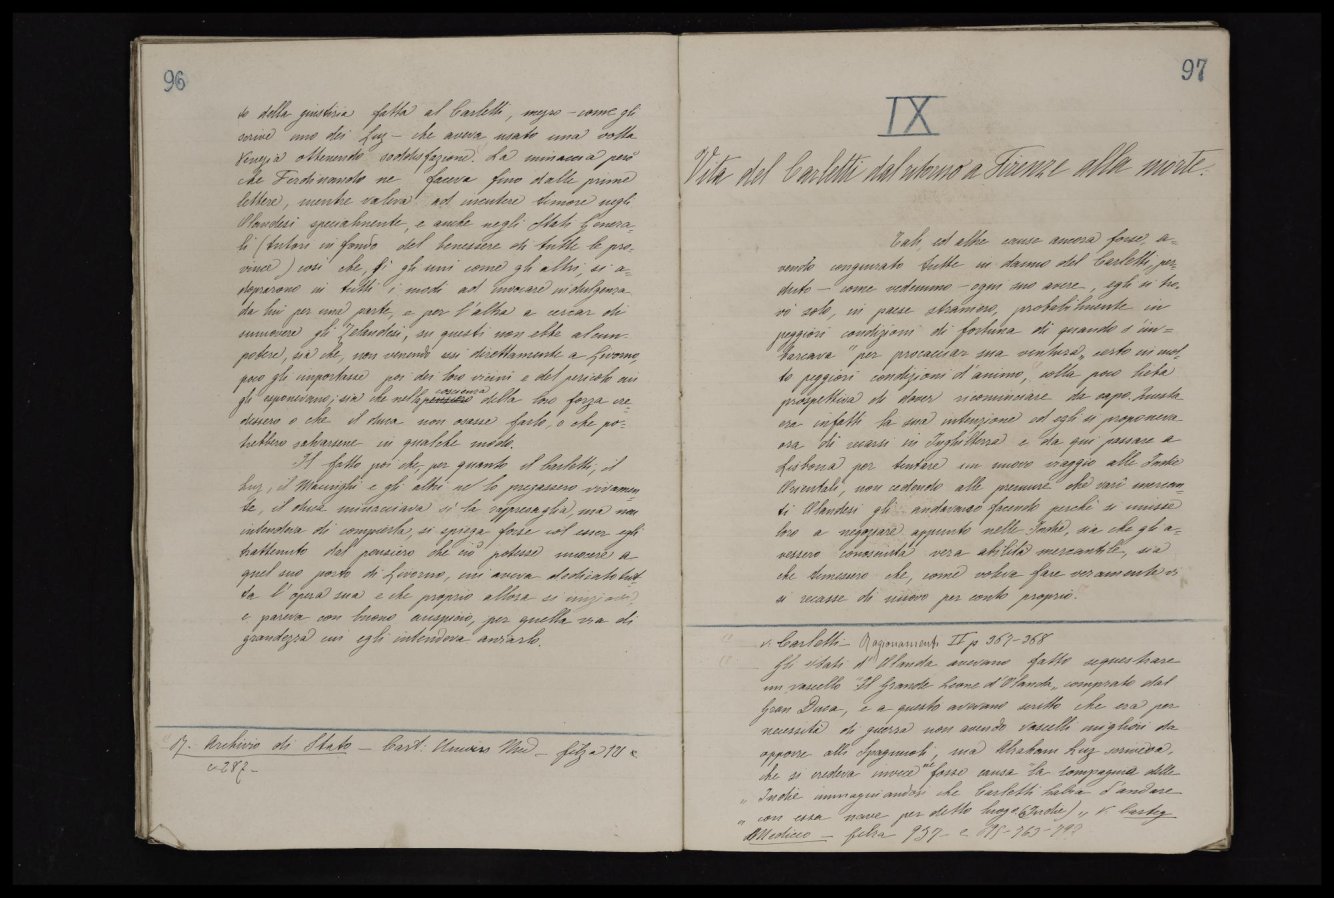 96
to della giustizia fatta al Carletti, mezzo – come gli
scrive uno dei Luz – che aveva usato una volta
Venezia ottenendo soddisfazione. La minaccia però
che Ferdinando ne faceva fino dalle prime
lettere, mentre valeva ad incutere timore negli
Olandesi specialmente, e anche negli Stati Genera-
li (tutori in fondo del benessere di tutte le pro-
vince) così che, gli uni come gli altri, si a-
doprarono in tutti i modi ad invocare indulgenza
da lui per una parte, e per l'altra a cercar di
smuovere gli Zelandesi, su questi non ebbe alcun
potere, sia che, non venendo essi direttamente a Livorno,
poco gli importasse poi dei loro vicini e del pericolo cui
gli esponevano; sia che nella coscienza della loro forza cre-
dessero o che il duca non osasse farlo, o che po-
trebbero salvarsene in qualche modo.
Il fatto poi che, per quanto il Carletti, il
Luz, il Maringhi e gli altri ne lo pregassero vivamen-
te, il duca minacciava sì la rappresaglia ma non
intendeva di compierla, si spiega forse col esser egli
trattenuto dal pensiero che ciò potesse nuocere a
quel suo porto di Livorno, cui aveva dedicato tut-
ta l'opera sua e che proprio allora si
e pareva con buono auspicio, per quella via di
grandezza cui egli intendeva avviarlo.
R. Archivio di Stato – Cart. Univers Med – filza 121
c 287 –
97
IX
Vita del Carletti dal ritorno a Firenze alla morte.
Tali, ed altre cause ancora forse, a-
vendo congiurato tutte in danno del Carletti, per-
duto – come vedemmo – ogni suo avere, egli si tro-
vò solo, in paese straniero, probabilmente in
peggiori condizioni di fortuna di quando s'im-
barcava "per procacciar sua ventura„ certo in mol-
to peggiori condizioni d'animo, colla poco lieta
prospettiva di dover ricominciare da capo. Questa
era infatti la sua intenzione ed egli si proponeva
ora di recarsi in Inghilterra e da qui passare a
Lisbona per tentare un nuovo viaggio alle Indie
Orientali, non cedendo alle premure che varî mercan-
ti Olandesi gli andavano facendo perchè si unisse
loro a negoziare appunto nelle Indie, sia che gli a-
vessero conosciuta vera abilità mercantile, sia
che temessero che, come voleva fare veramente
si recasse di nuovo per conto proprio.
v. Carletti – Ragionamenti II p 367-368
Gli stati d'Olanda avevano fatto sequestrare
un vascello "Il Grande Leone d'Olanda„ comprato dal
Gran Duca, e a questo avevano scritto che era per
necessità di guerra non avendo vascelli migliori da
opporre alli Spagnuoli; ma Abraham Luz scriveva,
che si credeva invece ne fosse causa "la compagnia delle
„ Indie immaginandosi che Carletti habia d'andare
„ con essa nave per detto luogo (Indie)„ v. Carteg
Mediceo – filza 937 –